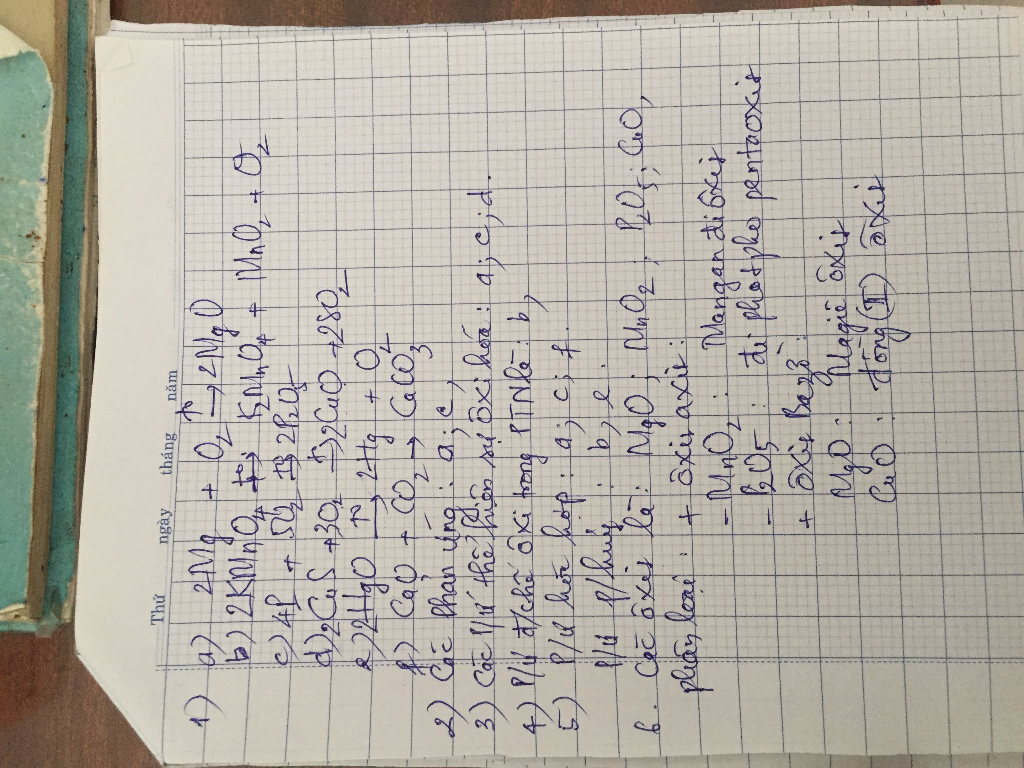 Thứ ngày tháng năm
1) a) 2Mg + O₂ t°→ 2MgO
b) 2KMnO₄ t°→ K₂MnO₄ + MnO₂ + O₂
c) 4P + 5O₂ t°→ 2P₂O₅
d) 2CuS + 3O₂ t°→ 2CuO + 2SO₂
e) 2HgO t°→ 2Hg + O₂
f) CaO + CO₂ → CaCO₃
2) Các phản ứng: a; c,
3) Các p/ứ thể hiện sự ôxi hóa: a; c; d.
4) P/ứ đ/chế ôxi trong PTN là: b,
5) P/ứ hóa hợp: a; c; f.
P/ứ p/hủy: b, e.
6. Các ôxit là: MgO; MnO₂; P₂O₅; CuO,
phân loại: + ôxit axit:
- MnO₂: Mangan đi ôxit
- P₂O₅: đi phôtpho pentaoxit
+ ôxit Bazơ:
MgO: Magiê ôxit
CuO: Đồng (II) ôxit